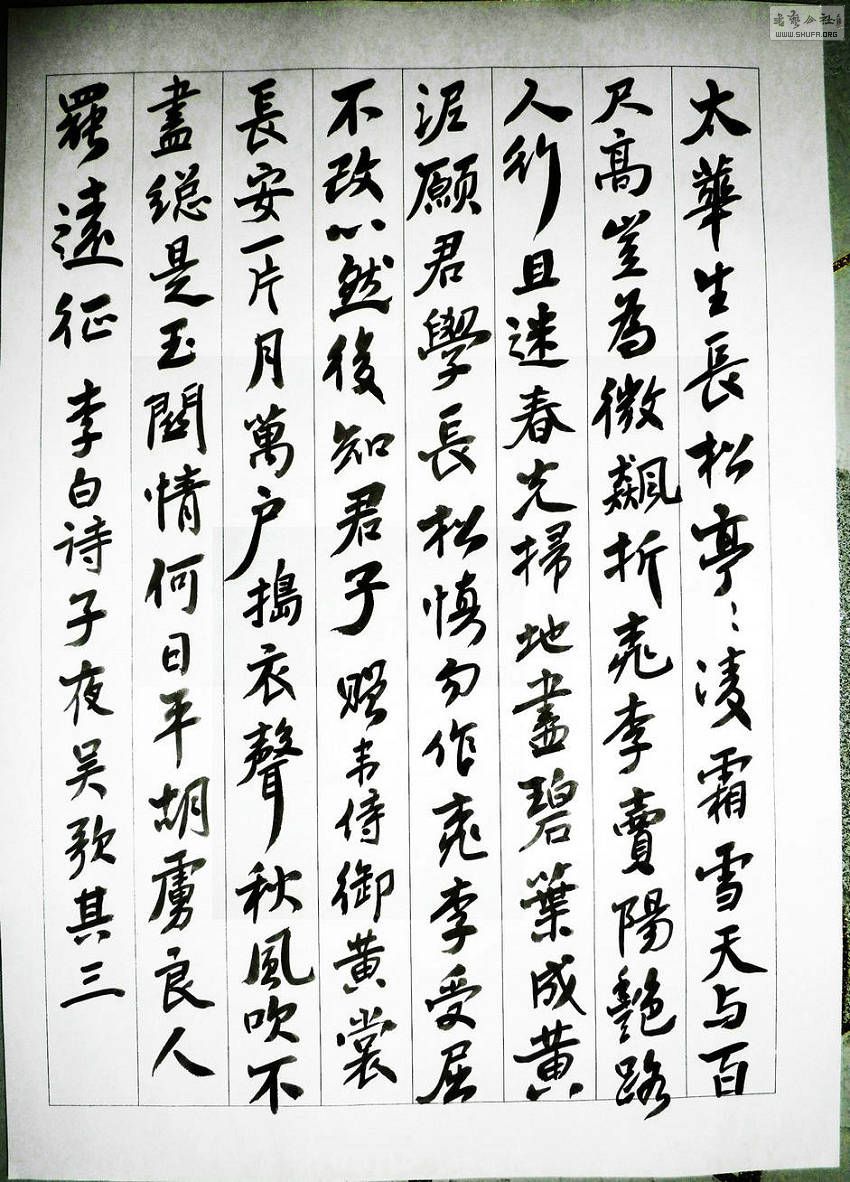 太華生長松亭〻凌霜雪天与百
尺高豈為微飆折桃李賣陽艷路
人行且迷春光掃地盡碧葉成黄
泥願君學長松慎勿作桃李受屈
不改心然後知君子 赠韦侍御黄裳
長安一片月萬户搗衣聲秋風吹不
盡總是玉關情何日平胡虜良人
罷遠征 李白诗子夜吴歌其三
WWW.SHUFA.ORG